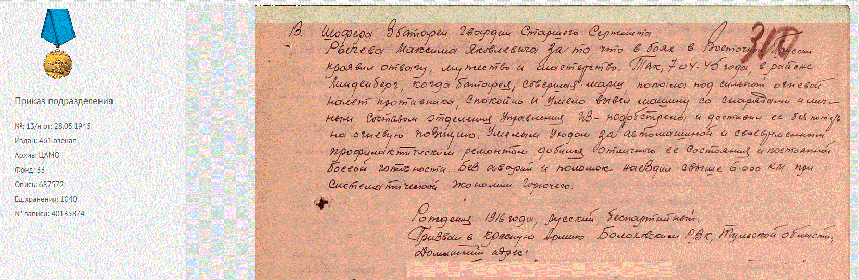 Приказ подразделения
№: 13/н от: 28.05.1945
Издан: 461 азенап
Архив: ЦАМО
Фонд: 33
Опись: 687572
Ед.хранения: 1040
№ записи: 40135874
13. Шофера 3 батареи Гвардии Старшего Сержанта
Максима Яковлевича за то что в боях в Восточной
проявил отвагу, мужество и мастерство. Так, 7-04-45 года, в районе
когда батарея, совершая марш попала под сильный огневой
налет противника, спокойно и умело вывел машину со снарядами и лич-
ным составом отделения управления из-под обстрела, и доставил ее без потерь
на огневую позицию. Умелым уходом за автомашиной и своевременным
профилактическим ремонтом добился отличного ее состояния и постоянной
боевой готовности. Без аварий и поломок наездил свыше 6000 км при
систематической экономии горючего.
Рождения 1916 года, русский, беспартийный.
Призван в Красную Армию РВК, Тульской области,
Домашний адрес: